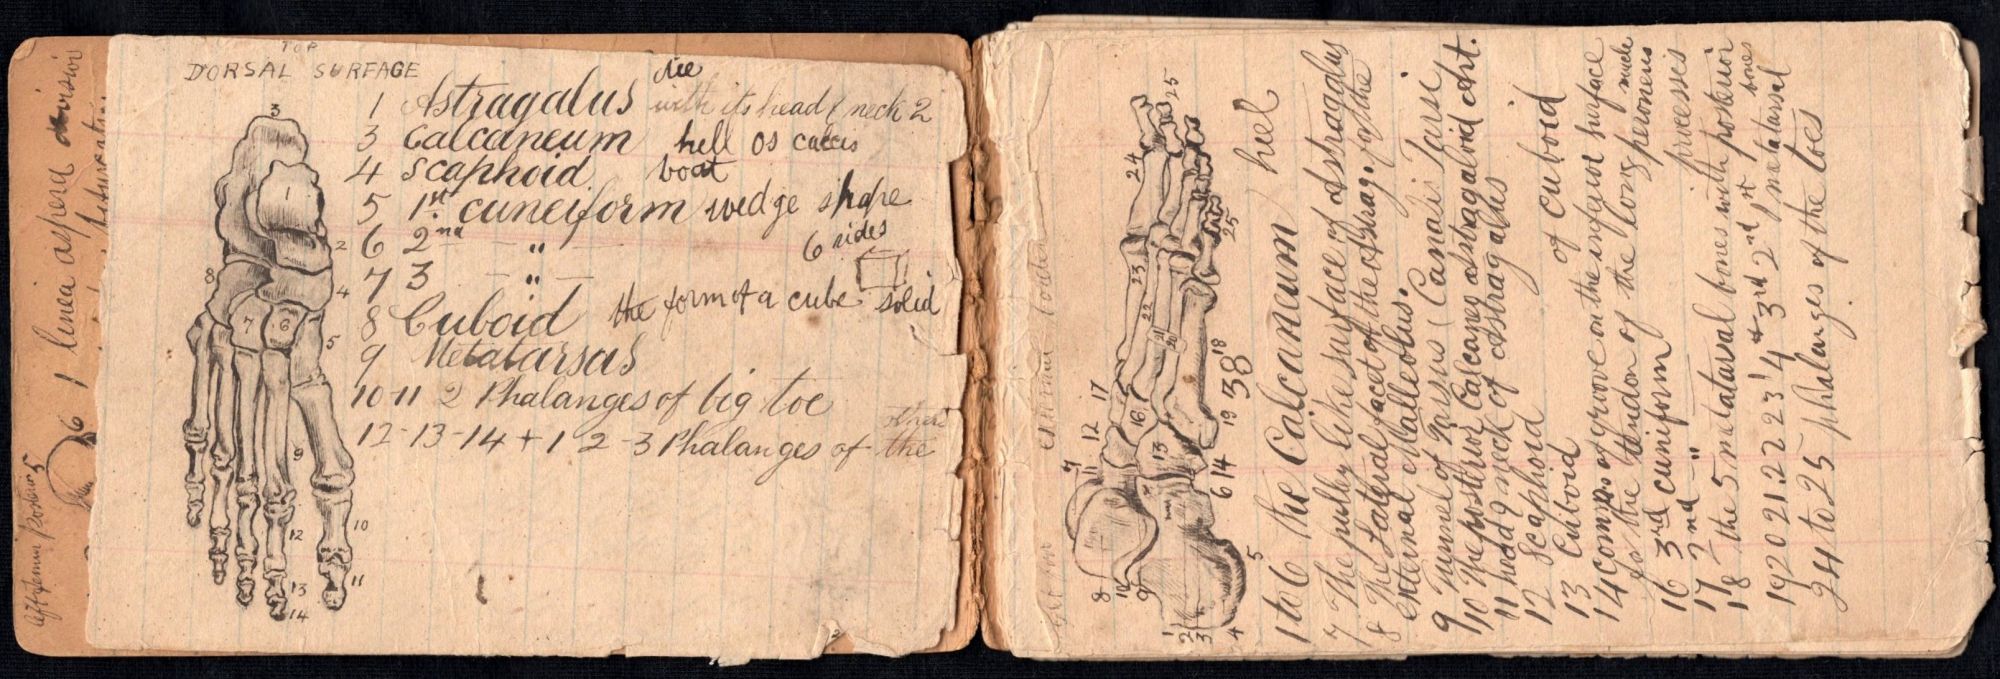 TOP
DORSAL SURFACE
die
1 Astragalus with its head & neck 2
3 Calcaneum hell os calcis
4 Scaphoid boat
5 1st cuneiform wedge shape
6 2nd - " - 6 sides
7 3 - " -
8 Cuboid the form of a cube solid
9 Metatarsas
10 11 2 Phalanges of big toe
12-13-14 + 1 2 -3 Phalanges of the
3
1
2
8
4
7 6
5
9
10
12
11
13
14
6 1 linea aspera division
1 to 6 the Calcaneum / heel
7 The pully like surface of Astragalus
8 The Lateral facet of the Astrag. for the
external Malleolus.
9 Tunnel of Tarsus (Canali Tarsi
10 The postrior Calcaneo Astragaloid Art.
11 head & neck of Astragalus
12 Scaphoid
13 Cuboid of cuboid
14 groove on the inferior surface
for the tendon of the long peroneus
16 3rd cuniform processes
17 2nd "
18 the 5 metatarsal bones with posterior
19 20 21 22 23 4th 3rd 2nd 1st metatarsal bones
24 to 25 phalanges of the toes
25
24
25
23
22
21
20
18
38
19
17
16
12
11
13
14
6
5
8
10
9
1
2
3
4